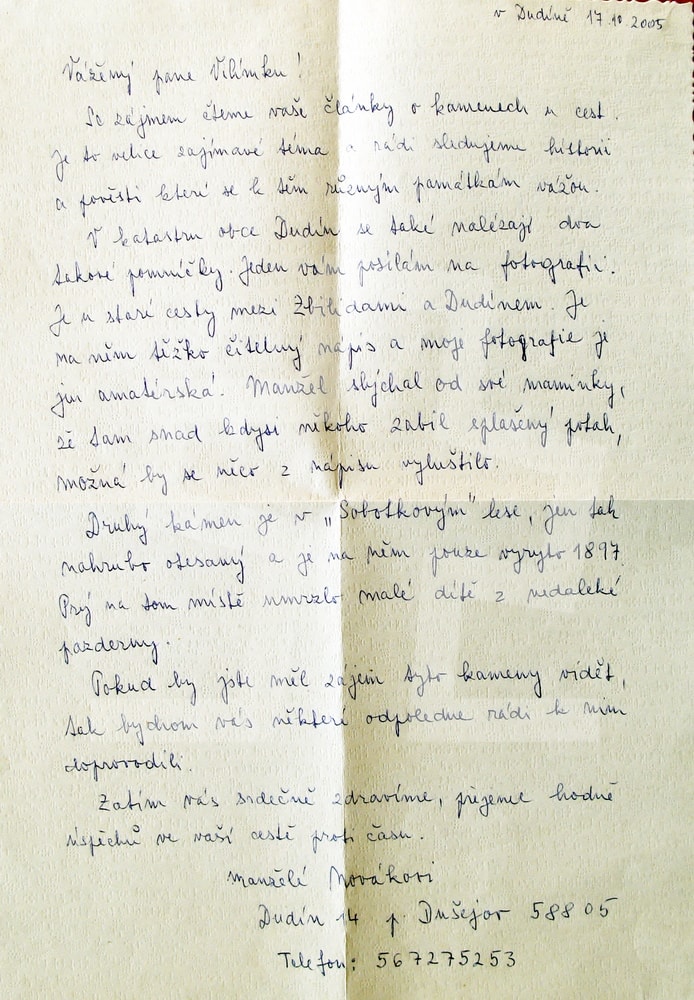 v Dudíně 17.10 2005
Vážený pane Vilímku!
Se zájmem čteme vaše články o kamenech u cest.
Je to velice zajímavé téma a rádi sledujeme historii
a pověsti které se k těm různým památkám vážou.
V katastru obce Dudín se také nalézají dva
takové pomníčky. Jeden vám posílám na fotografii.
Je u staré cesty mezi Zbilidami a Dudínem. Je
na něm těžko čitelný nápis a moje fotografie je
jen amatérská. Manžel slýchal od své maminky,
že tam snad kdysi někoho zabil splašený potah,
možná by se něco z nápisu vyluštilo.
Druhý kámen je v „Sobotkovým" lese, jen tak
nahrubo otesaný a je na něm pouze vyryto 1897
Prý na tom místě umrzlo malé dítě z nedaleké
pazderny.
Pokud by jste měl zájem tyto kameny vidět,
tak bychom vás některé odpoledne rádi k nim
doprovodili.
Zatím vás srdečně zdravíme, přejeme hodně
úspěchů ve vaší cestě proti času.
manželé Novákovi
Dudín 14 p. Dušejov 588 05
Telefon: 567275253